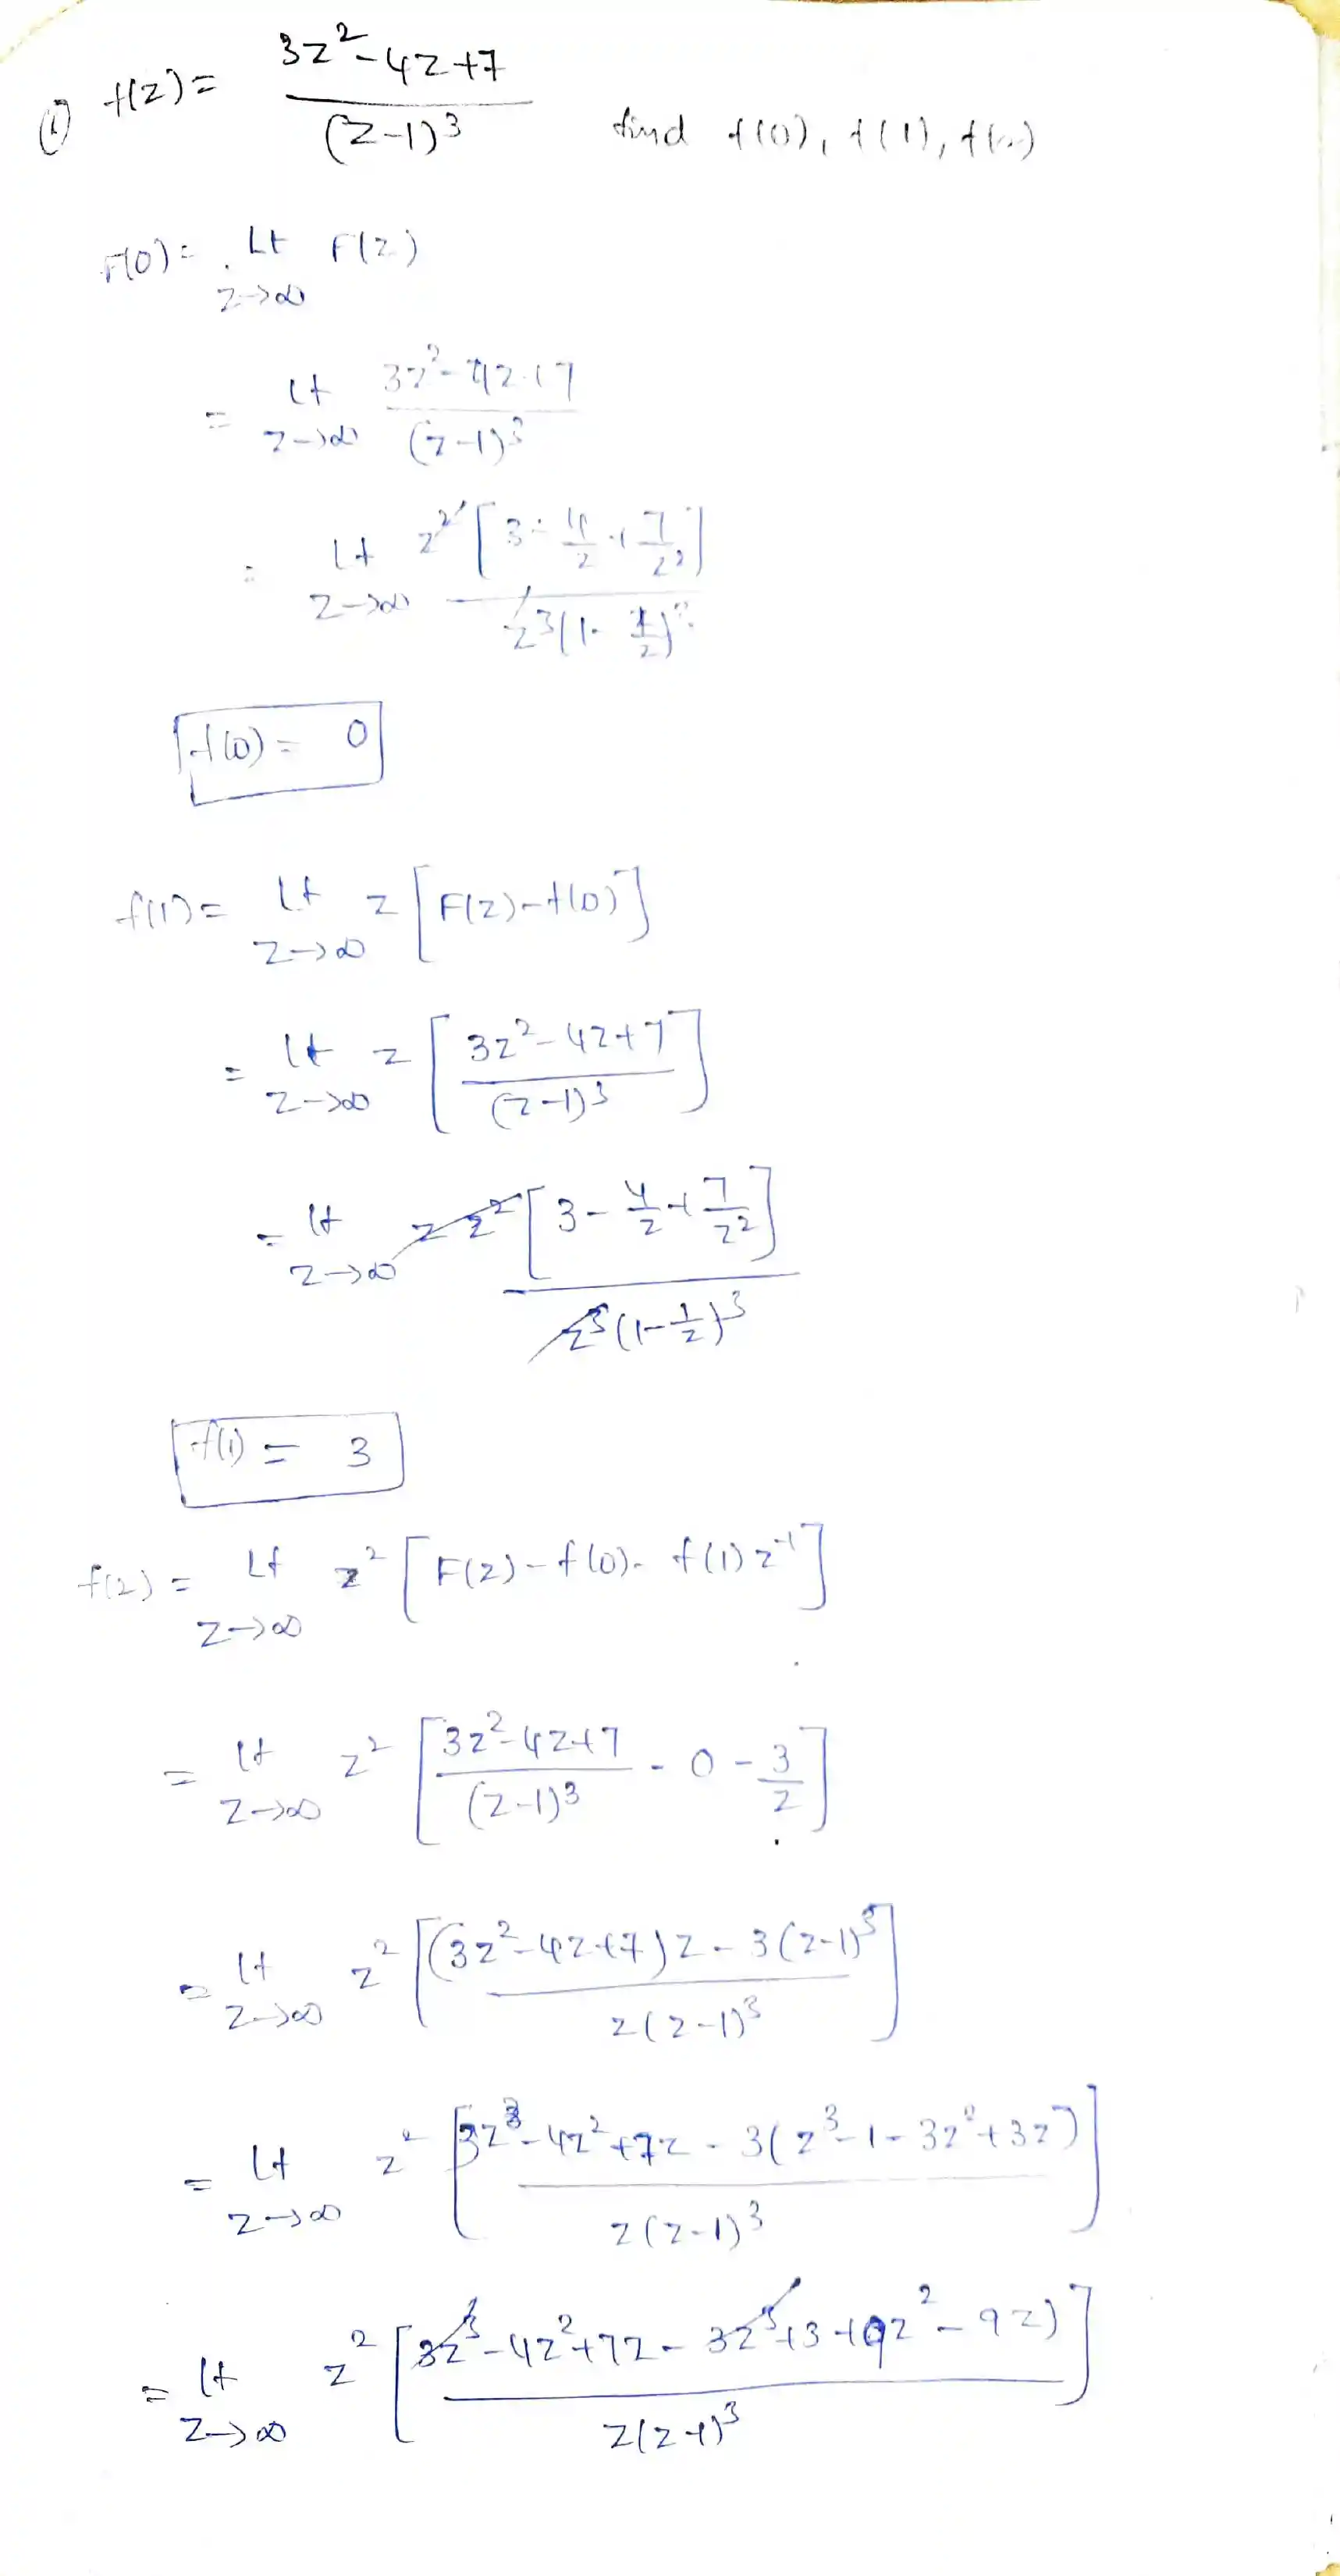 ① f(z) = 3z² - 4z + 7 / (z-1)³ find f(0), f(1), f(∞)
F(0) = Lt z→∞ F(z)
= Lt z→∞ 3z² - 4z + 7 / (z-1)³
= Lt z→∞ z² [3 - 4/z + 7/z²] / z³(1 - 1/z)³
f(0) = 0
f(1) = Lt z→∞ z [F(z) - f(0)]
= Lt z→∞ z [3z² - 4z + 7 / (z-1)³]
= Lt z→∞ z z² [3 - 4/z + 7/z²] / z³(1 - 1/z)³
f(1) = 3
f(2) = Lt z→∞ z² [F(z) - f(0) - f(1) z⁻¹]
= Lt z→∞ z² [3z² - 4z + 7 / (z-1)³ - 0 - 3/z]
= Lt z→∞ z² [(3z² - 4z + 7)z - 3(z-1)³ / z(z-1)³]
= Lt z→∞ z² [3z³ - 4z² + 7z - 3(z³ - 1 - 3z² + 3z) / z(z-1)³]
= Lt z→∞ z² [3z³ - 4z² + 7z - 3z³ + 3 + 9z² - 9z) / z(z-1)³]